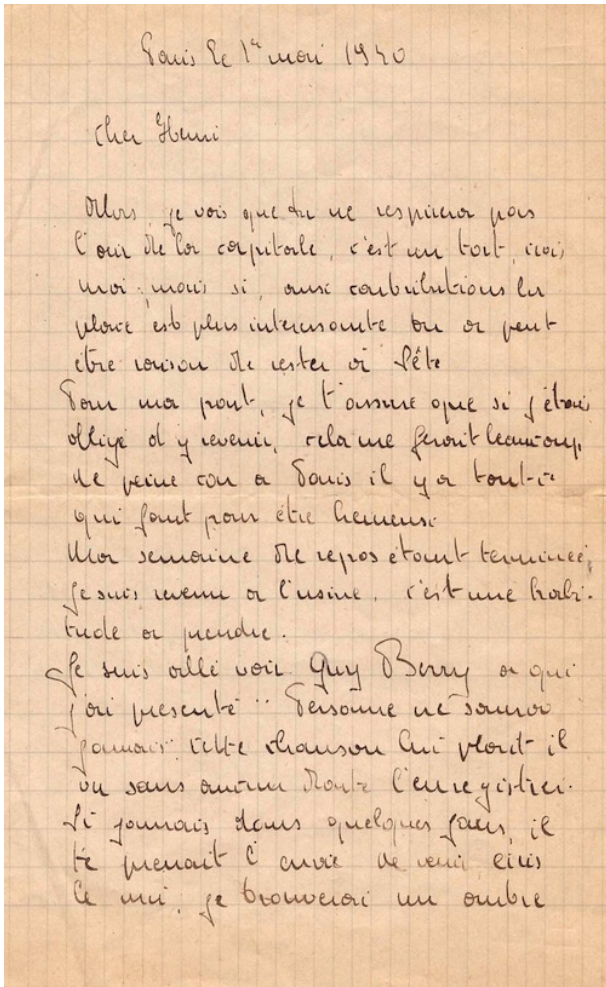 Paris le 1er mai 1940
Cher Henri
Alors, je vois que tu ne respirera pas
l'air de la capitale, c'est un tort, crois
moi, mais si, aux contributions la
place est plus interessante tu a peut
être raison de rester a Sête
Pour ma part, je t'assure que si j'étais
obligé d'y revenir, cela me ferait beaucoup
de peine car a Paris il y a tout ce
qui faut pour être heureuse
Ma semaine de repos étant terminée,
je suis revenu a l'usine, c'est une habi-
tude a prendre.
Je suis allé voir Guy Berry a qui
j'ai presenté " Personne ne saura
jamais" cette chanson lui plait il
va sans aucun doute l'enregistrer.
Si jamais, dans quelques jours, il
te prenait l'envie de venir
je trouverai un ombre